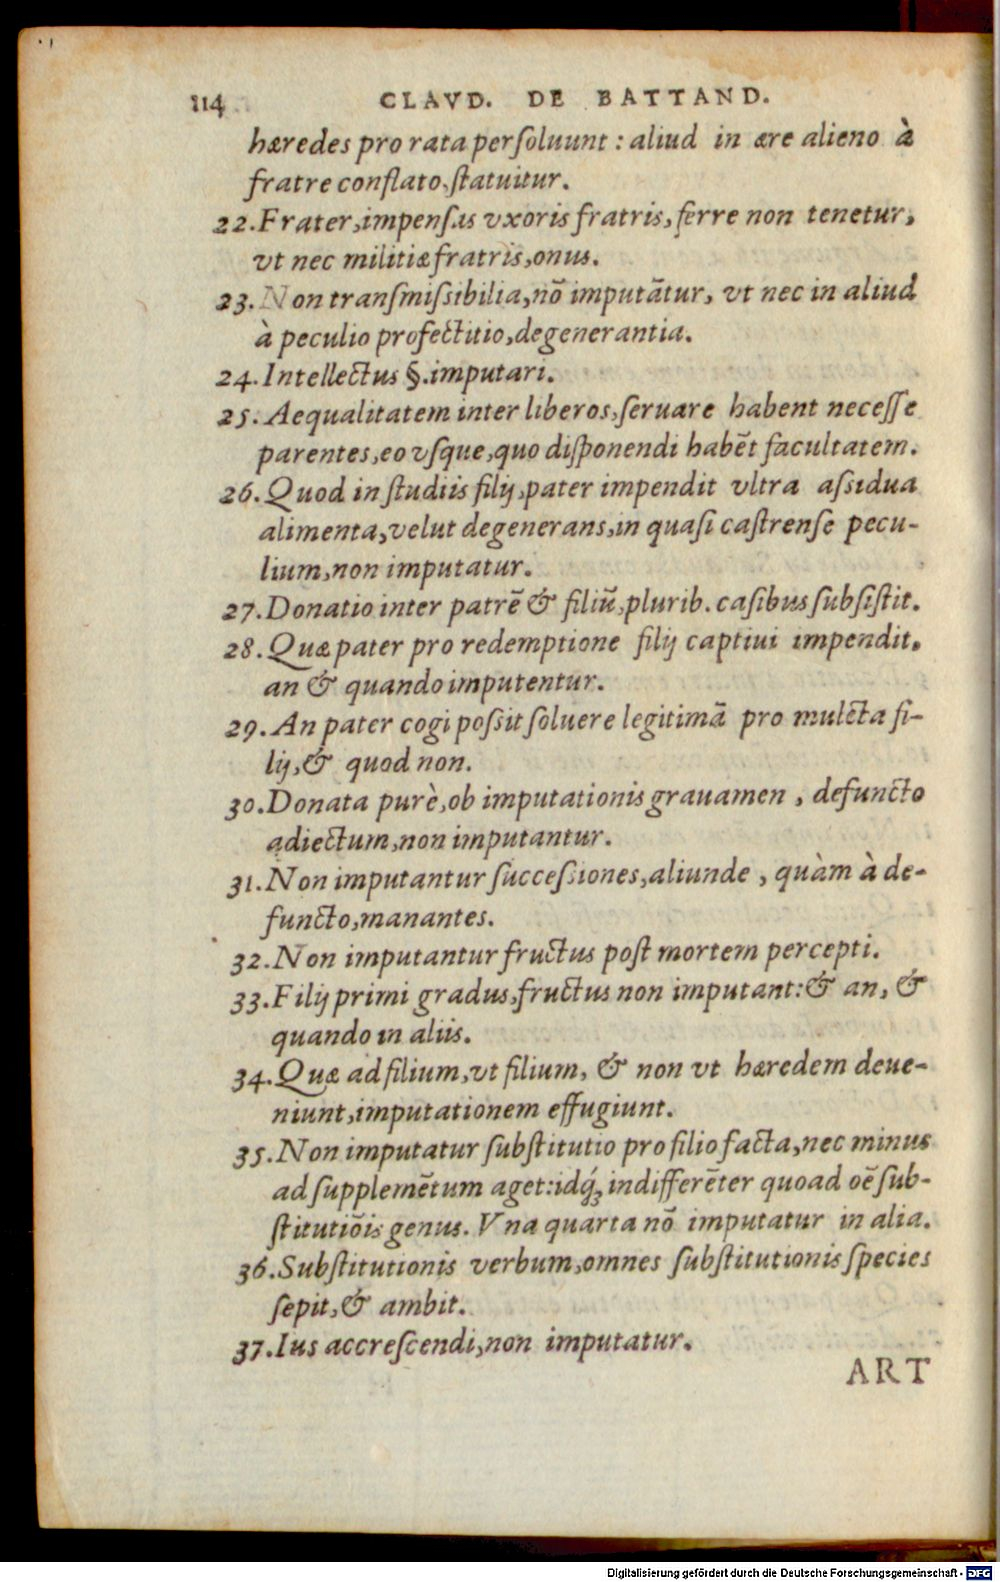 114 CLAVD. DE BATTAND.
hæredes pro rata perſoluunt : aliud in ære alieno à
fratre conflato, ſtatuitur.
22. Frater, impenſas vxoris fratris, ferre non tenetur,
vt nec militiæ fratris, onus.
23. Non tranſmiſsibilia, nō imputātur, vt nec in aliud
à peculio profectitio, degenerantia.
24. Intellectus §. imputari.
25. Aequalitatem inter liberos, ſeruare habent neceſſe
parentes, eo vſque, quo diſponendi habēt facultatem.
26. Quod in ſtudiis filij, pater impendit vltra aſsidua
alimenta, velut degenerans, in quaſi caſtrenſe pecu-
lium, non imputatur.
27. Donatio inter patrē & filiū, plurib. caſibus ſubſiſtit.
28. Quæ pater pro redemptione filij captiui impendit,
an & quando imputentur.
29. An pater cogi poſsit ſoluere legitimā pro mulcta fi-
lij, & quod non.
30. Donata purè, ob imputationis grauamen , defuncto
adiectum, non imputantur.
31. Non imputantur ſucceſsiones, aliunde , quàm à de-
functo, manantes.
32. Non imputantur fructus poſt mortem percepti.
33. Filij primi gradus, fructus non imputant: & an, &
quando in aliis.
34. Quæ ad filium, vt filium, & non vt hæredem deue-
niunt, imputationem effugiunt.
35. Non imputatur ſubſtitutio pro filio facta, nec minus
ad ſupplemētum aget: idq́ꝫ indifferēter quoad oē ſub-
ſtitutiōis genus. Vna quarta nō imputatur in alia.
36. Subſtitutionis verbum, omnes ſubſtitutionis ſpecies
ſepit, & ambit.
37. Ius accreſcendi, non imputatur.
ART
Digitalisierung gefördert durch die Deutsche Forschungsgemeinschaft - DFG